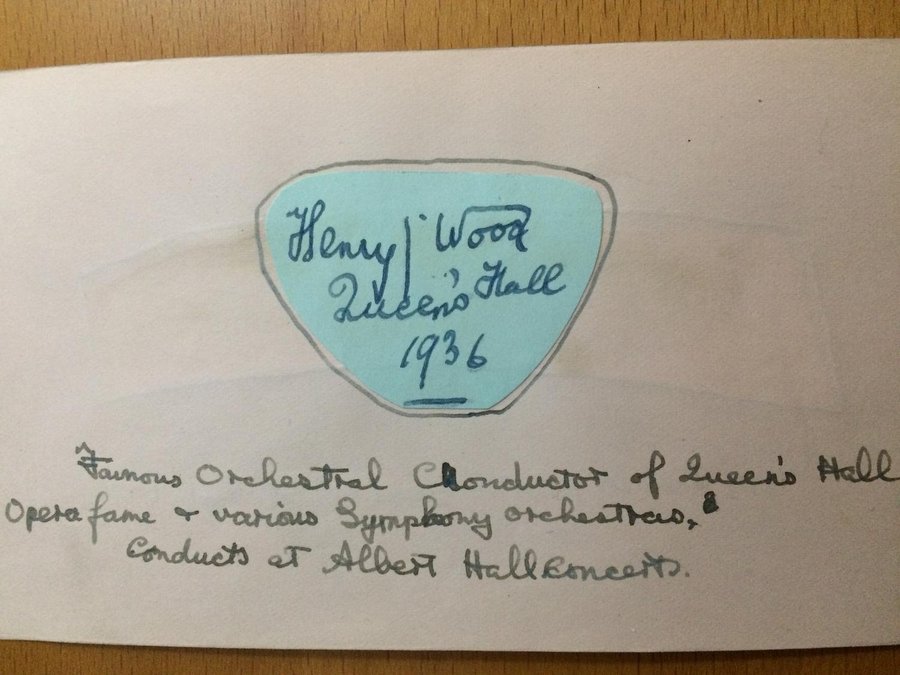 Henry J. Wood
Queen's Hall
1936
Famous Orchestral Conductor of Queen's Hall
Opera fame & various Symphony orchestras,
Conducts at Albert Hall Concerts.